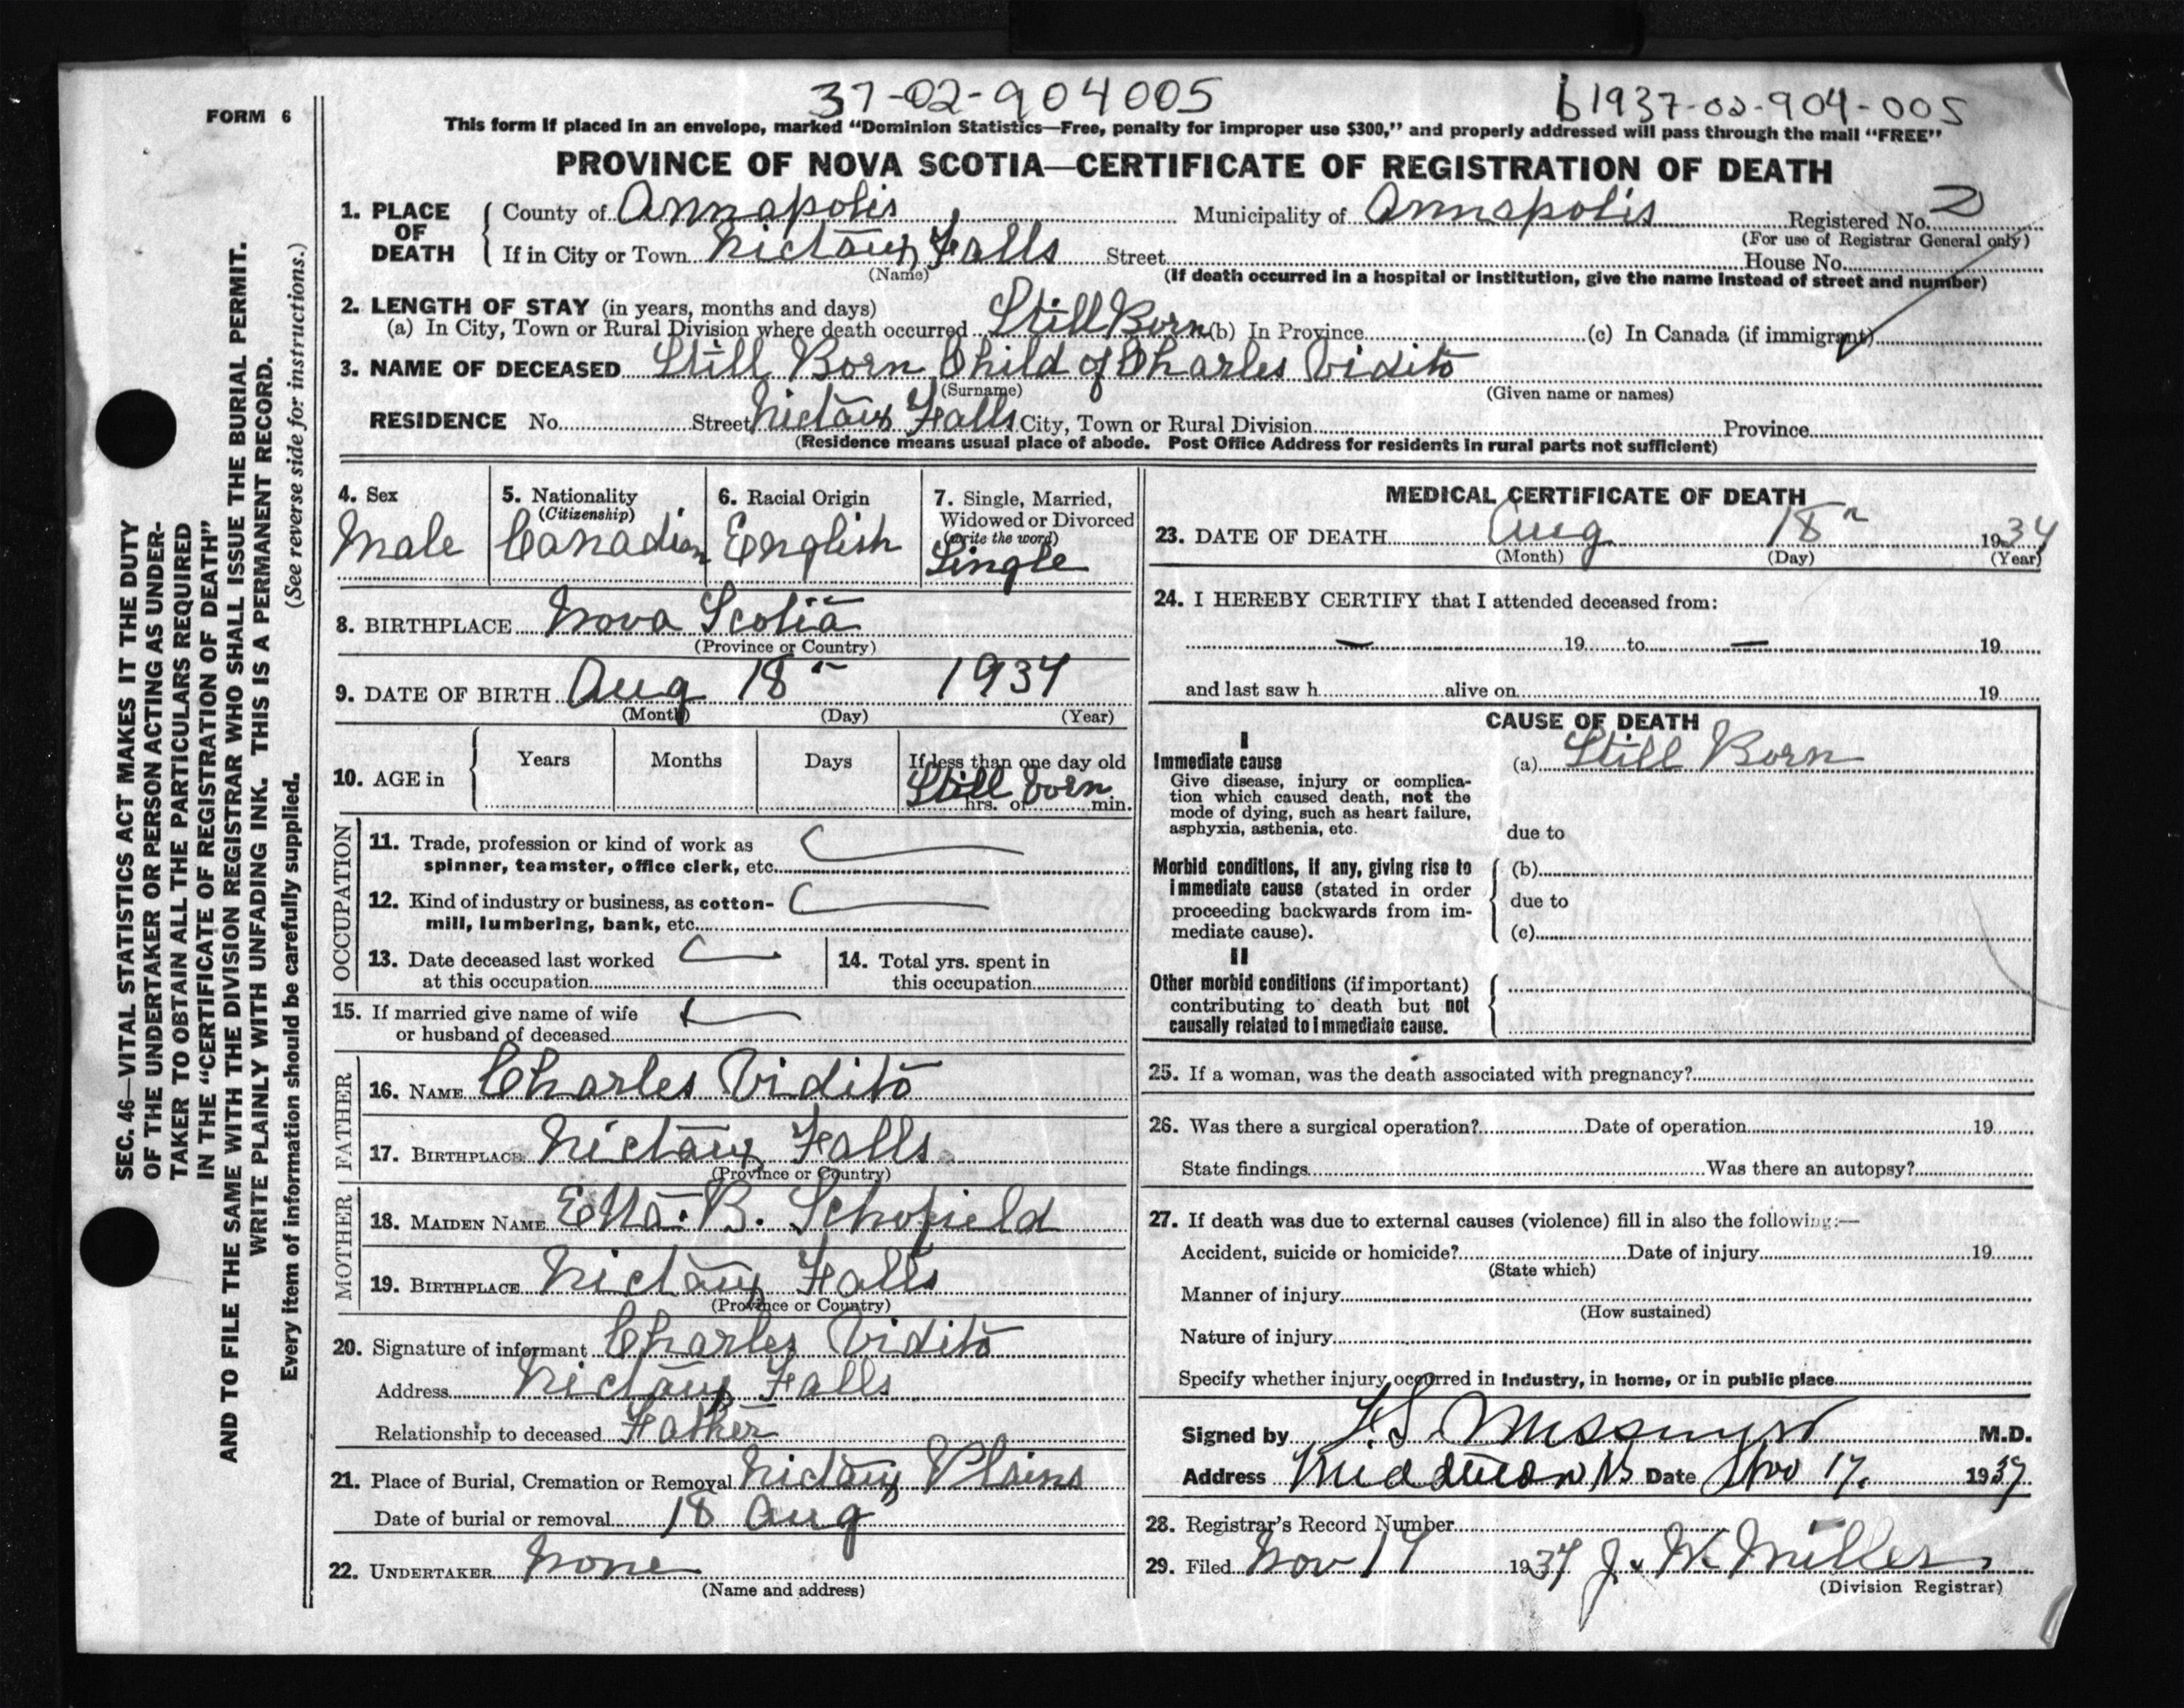 37-02-904005
b1937-02-904-005
FORM 6
This form if placed in an envelope, marked “Dominion Statistics—Free, penalty for improper use $300,” and properly addressed will pass through the mail “FREE”
PROVINCE OF NOVA SCOTIA—CERTIFICATE OF REGISTRATION OF DEATH
1. PLACE OF DEATH County of Annapolis Municipality of Annapolis Registered No. 2
(For use of Registrar General only)
If in City or Town Nictaux Falls Street House No.
(Name) (If death occurred in a hospital or institution, give the name instead of street and number)
2. LENGTH OF STAY (in years, months and days)
(a) In City, Town or Rural Division where death occurred Still Born (b) In Province (c) In Canada (if immigrant)
3. NAME OF DECEASED Still Born Child of Charles Vidito
(Surname) (Given name or names)
RESIDENCE No. Street Nictaux Falls City, Town or Rural Division Province
(Residence means usual place of abode. Post Office Address for residents in rural parts not sufficient)
SEC. 46—VITAL STATISTICS ACT MAKES IT THE DUTY
OF THE UNDERTAKER OR PERSON ACTING AS UNDER-
TAKER TO OBTAIN ALL THE PARTICULARS REQUIRED
IN THE “CERTIFICATE OF REGISTRATION OF DEATH”
AND TO FILE THE SAME WITH THE DIVISION REGISTRAR WHO SHALL ISSUE THE BURIAL PERMIT.
WRITE PLAINLY WITH UNFADING INK. THIS IS A PERMANENT RECORD.
Every item of information should be carefully supplied. (See reverse side for instructions.)
4. Sex
Male
5. Nationality
(Citizenship)
Canadian
6. Racial Origin
English
7. Single, Married,
Widowed or Divorced
(write the word)
Single
8. BIRTHPLACE Nova Scotia
(Province or Country)
9. DATE OF BIRTH Aug 18 1937
(Month) (Day) (Year)
10. AGE in Years Months Days If less than one day old
Still born
hrs. or min.
OCCUPATION
11. Trade, profession or kind of work as
spinner, teamster, office clerk, etc.
12. Kind of industry or business, as cotton-
mill, lumbering, bank, etc.
13. Date deceased last worked
at this occupation
14. Total yrs. spent in
this occupation
15. If married give name of wife
or husband of deceased
FATHER
16. NAME Charles Vidito
17. BIRTHPLACE Nictaux Falls
(Province or Country)
MOTHER
18. MAIDEN NAME Etta. B. Schofield
19. BIRTHPLACE Nictaux Falls
(Province or Country)
20. Signature of informant Charles Vidito
Address Nictaux Falls
Relationship to deceased Father
21. Place of Burial, Cremation or Removal Nictaux Plains
Date of burial or removal 18 Aug
22. UNDERTAKER None
(Name and address)
MEDICAL CERTIFICATE OF DEATH
23. DATE OF DEATH Aug 18 1937
(Month) (Day) (Year)
24. I HEREBY CERTIFY that I attended deceased from:
— 19 to — 19
and last saw h alive on 19
CAUSE OF DEATH
I
Immediate cause
Give disease, injury or complica-
tion which caused death, not the
mode of dying, such as heart failure,
asphyxia, asthenia, etc.
(a) Still Born
due to
Morbid conditions, if any, giving rise to
immediate cause (stated in order
proceeding backwards from im-
mediate cause).
(b)
due to
(c)
II
Other morbid conditions (if important)
contributing to death but not
causally related to immediate cause.
25. If a woman, was the death associated with pregnancy?
26. Was there a surgical operation? Date of operation 19
State findings Was there an autopsy?
27. If death was due to external causes (violence) fill in also the following:—
Accident, suicide or homicide? Date of injury 19
(State which)
Manner of injury
(How sustained)
Nature of injury
Specify whether injury occurred in industry, in home, or in public place
Signed by M.D.
Address Middleton NS Date Nov 17. 1937
28. Registrar's Record Number
29. Filed Nov 17 1937 J. W. Miller
(Division Registrar)